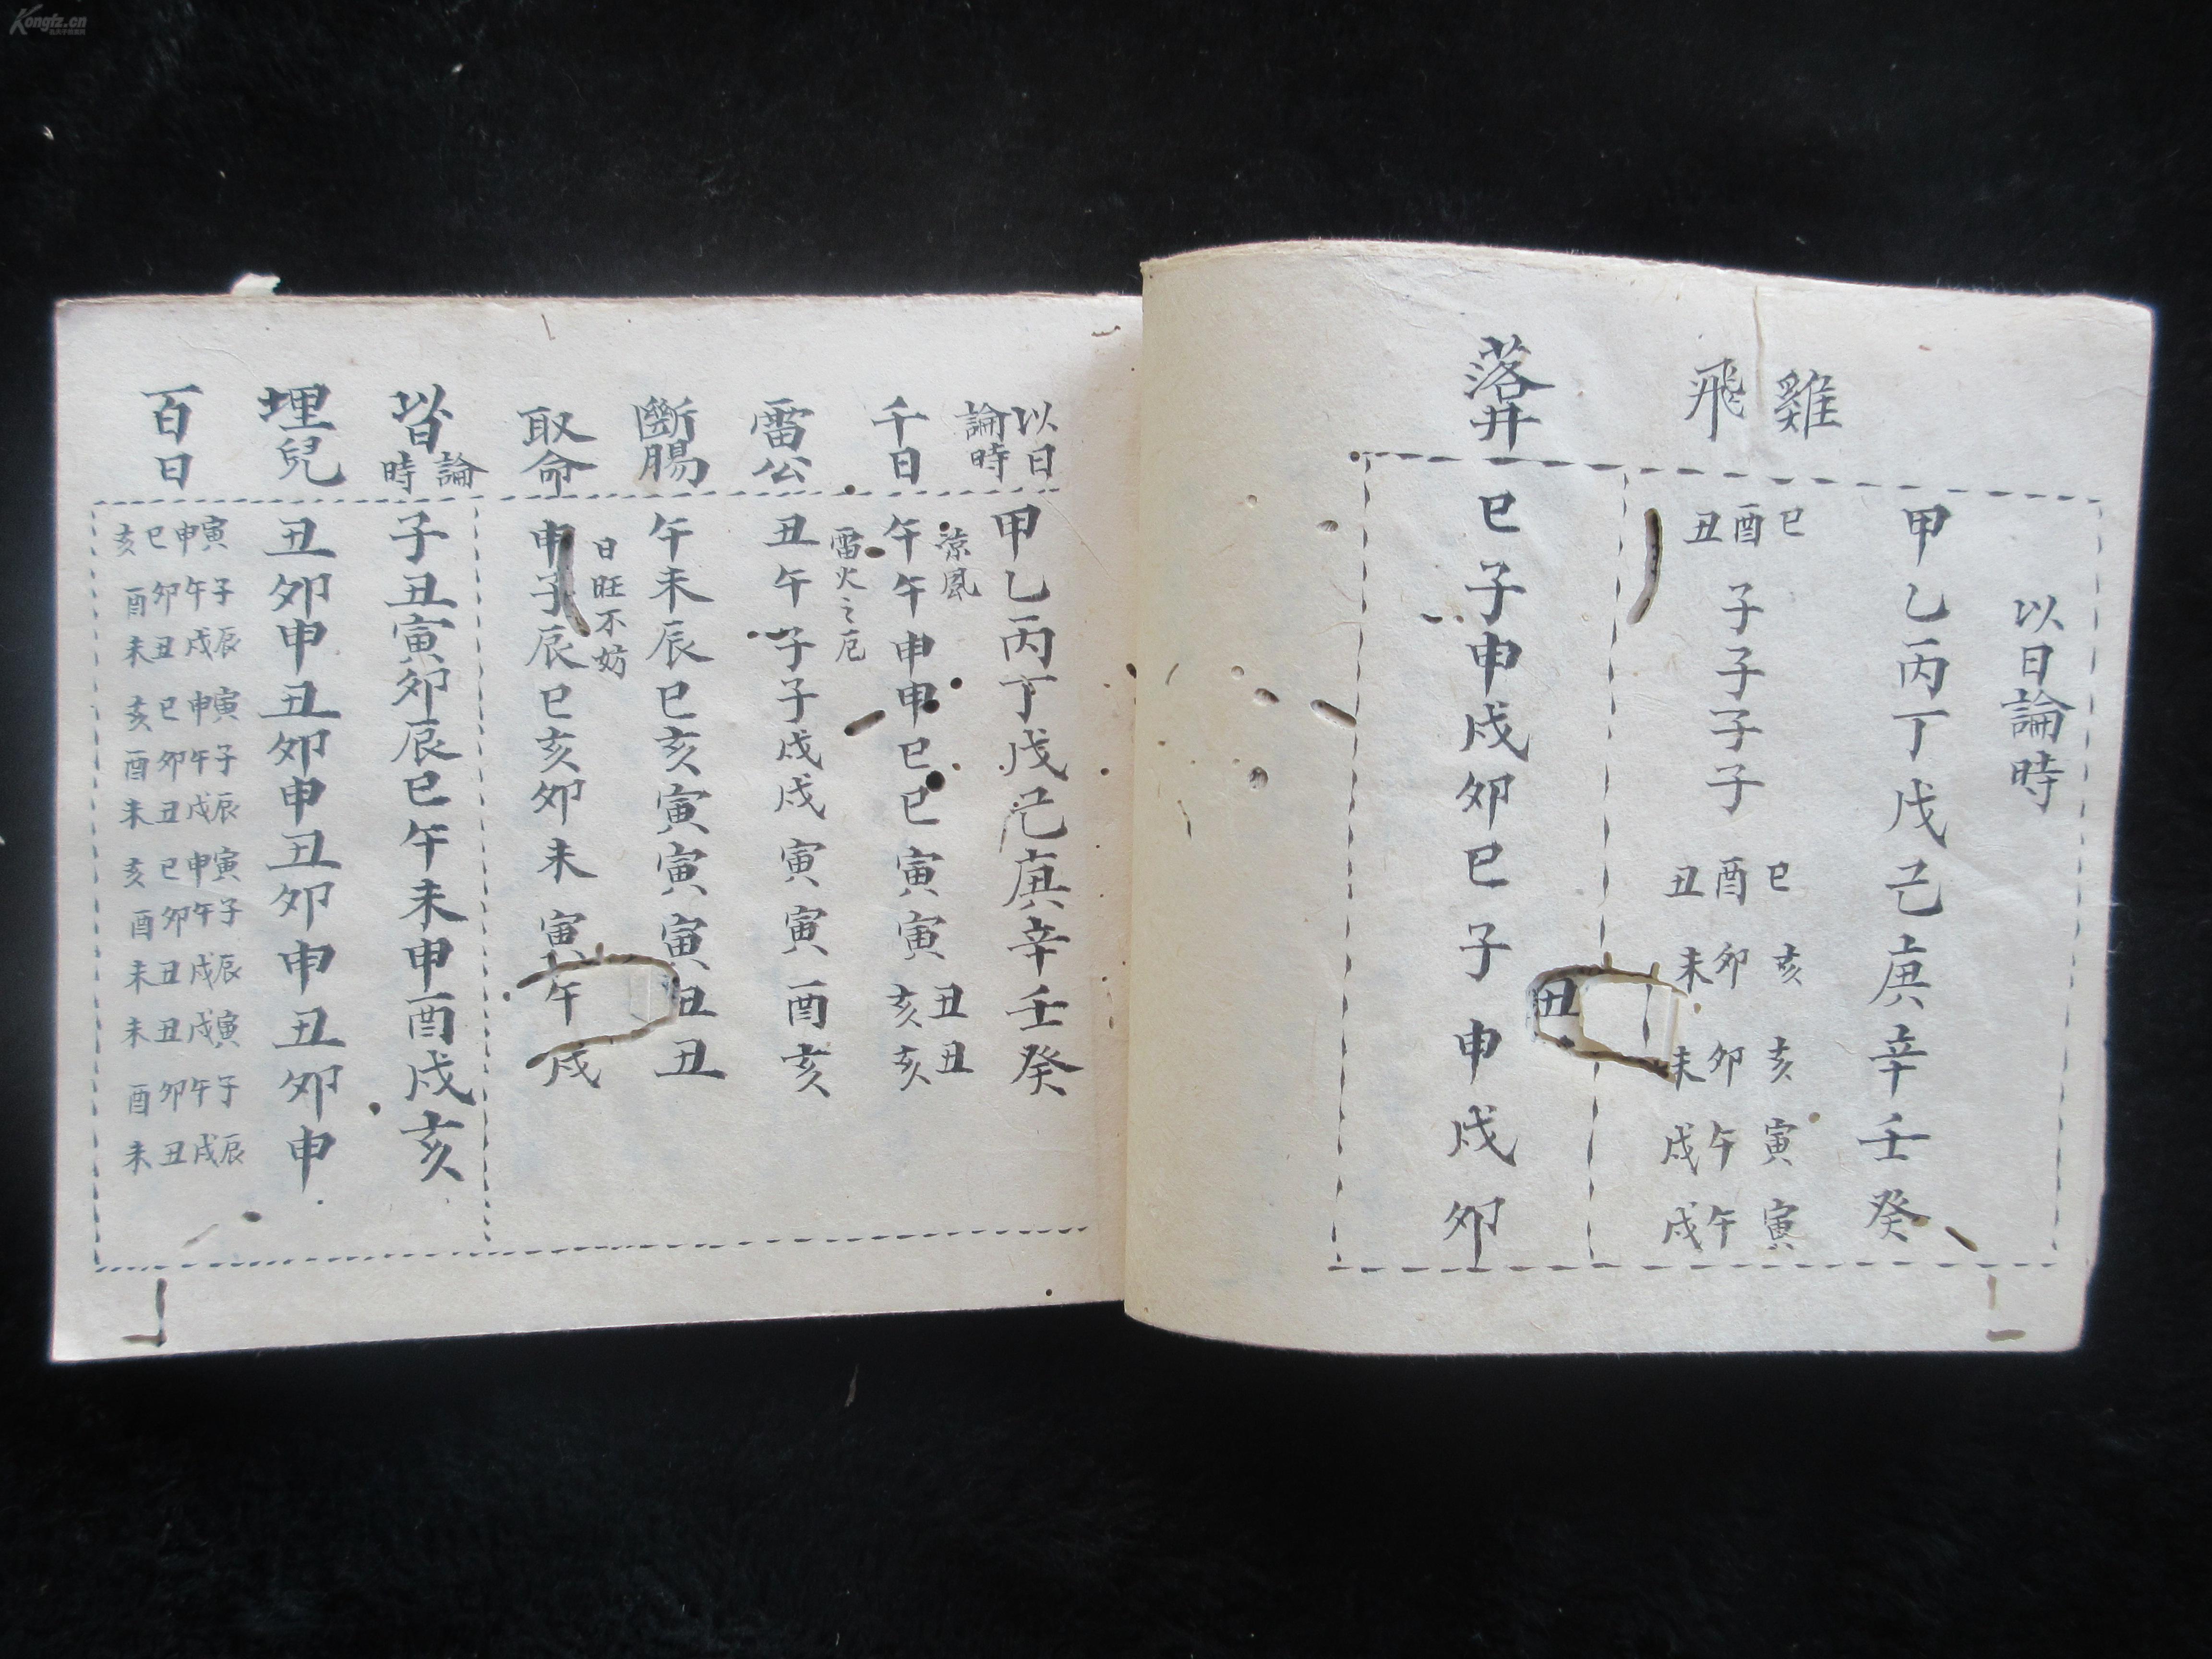 以日論時
甲乙丙丁戊己庚辛壬癸
雞飛
巳酉丑
子
子
子
子
巳酉丑
亥卯未
亥卯未
寅午戌
寅午戌
落井
巳子申戌卯巳子申戌卯
丑
以日論時
甲乙丙丁戊己庚辛壬癸
涼風
千日
午午申申巳巳寅寅
丑亥
丑亥
雷火之厄
雷公
丑午子子戌戌寅寅酉亥
斷腸
午未辰巳亥寅寅寅丑丑
日旺不妨
取命
申子辰巳亥卯未寅午戌
皆論時
子丑寅卯辰巳午未申酉戌亥
埋兒
丑卯申丑卯申丑卯申丑卯申
百日
寅申巳亥
子午卯酉
辰戌丑未
寅申巳亥
子午卯酉
辰戌丑未
寅申巳亥
子午卯酉
辰戌丑未
寅戌丑未
子午卯酉
辰戌丑未
Kongfz.cn